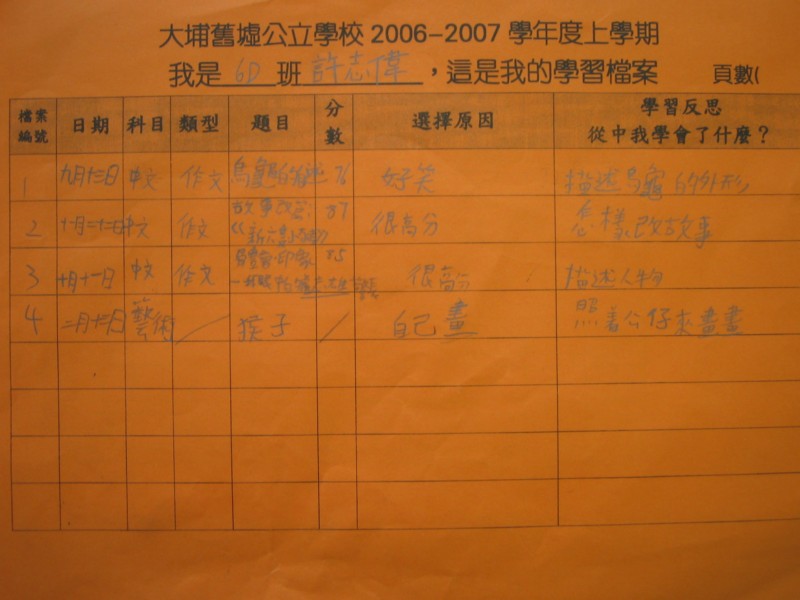 大埔舊墟公立學校 2006-2007 學年度上學期
我是 6D 班 許志偉 ，這是我的學習檔案 頁數(
檔案編號 日期 科目 類型 題目 分數 選擇原因 學習反思 從中我學會了什麼？
1 九月十三日 中文 作文 烏龜的 76 好笑 描述烏龜的外形
2 十月二十二日 中文 作文 故事改寫： 87 很高分 怎樣改故事
3 十月十一日 中文 作文 85 很高 描述人物
4 二月 日 藝術 ／ 猴子 ／ 自己畫 照着公仔來畫畫